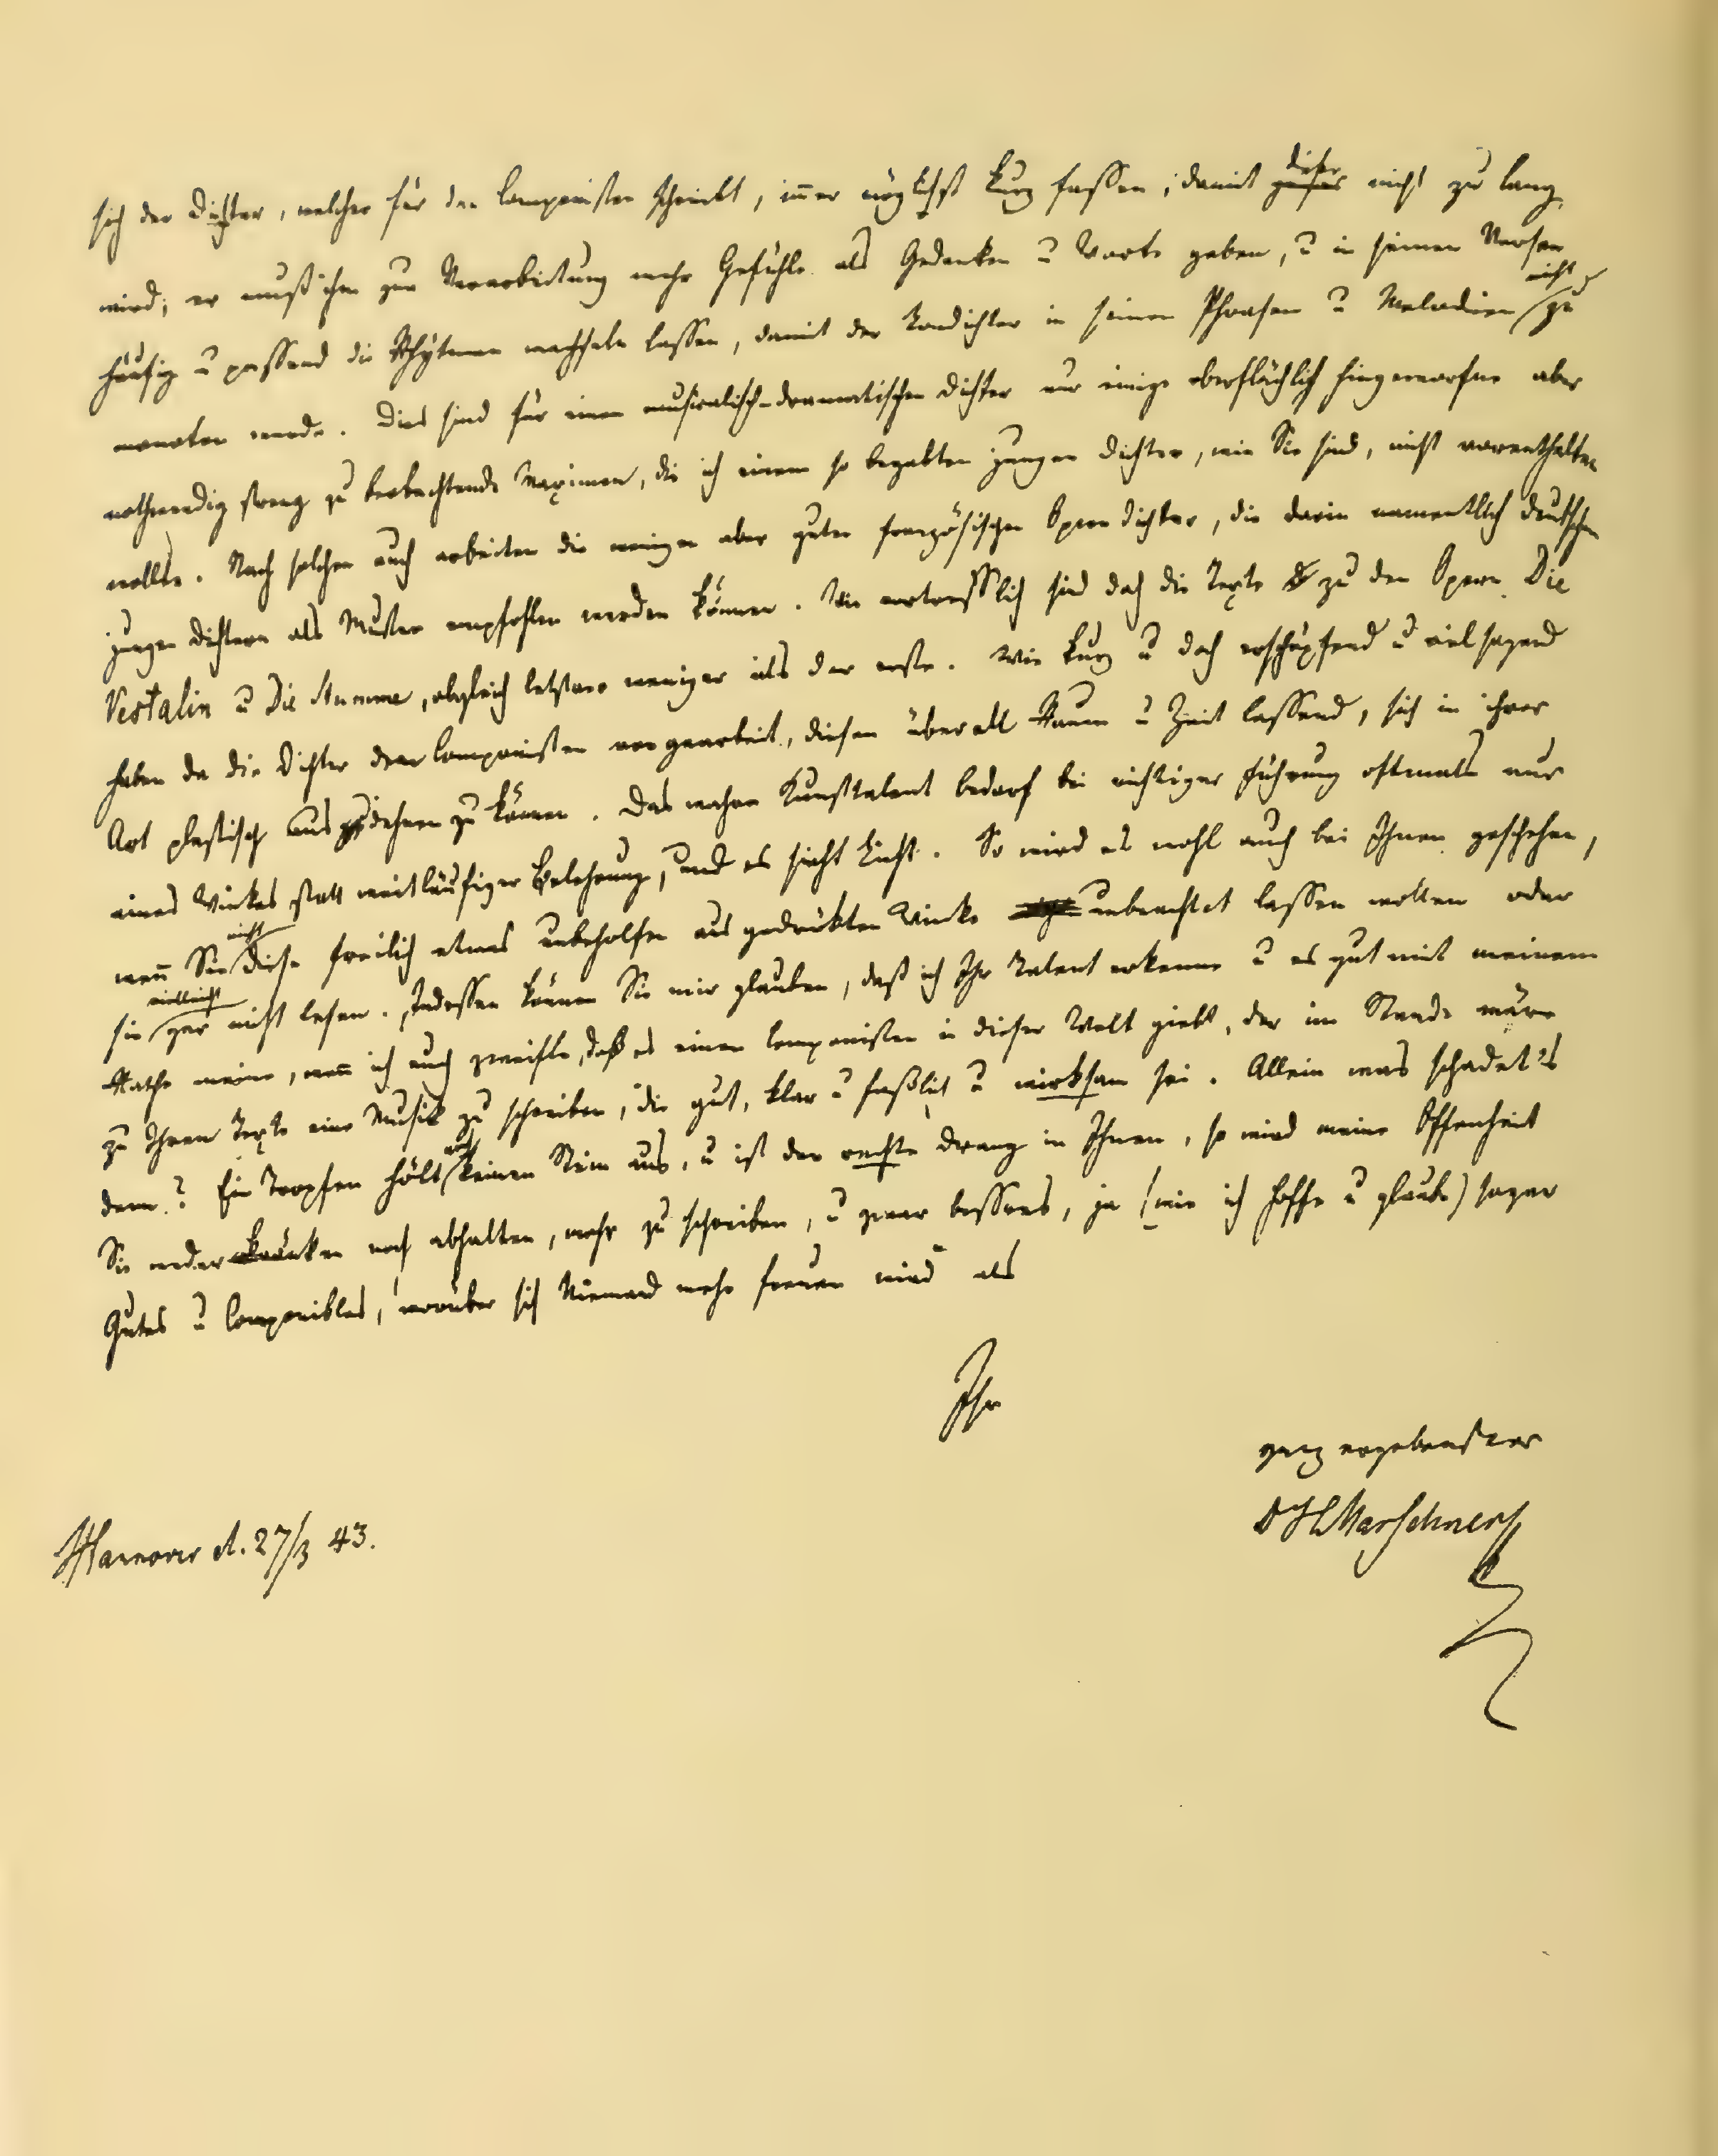 sich der Dichter, welcher für den Componisten schreibt, im̄er möglichst kurz fassen, damit dieser nicht zu lang
wird; er muß ihm zur Verarbeitung mehr Gefühle als Gedanken u Worte geben, u in seinen Versen
häufig u passend die Rhytmen wechseln lassen, damit der Tondichter in seinen Phrasen u Melodien nicht zu
monoton werde. Dies sind für einen musikalisch-dramatischen Dichter nur einige oberflächlich hingeworfne aber
nothwendig streng zu beobachtende Maximen, die ich einem so begabten jungen Dichter, wie Sie sind, nicht vorenthalten
wollte. Nach solchen auch arbeiten die wenigen aber guten französischen Operndichter, die darin namentlich deutschen
jungen Dichtern als Muster empfohlen werden können. Wie vortrefflich sind doch die Texte zu den Opern Die
Vestalin u Die Stumme, obgleich letztere weniger als der erste. Wie kurz u doch erschöpfend u vielsagend
haben da die Dichter dem Componisten vorgearbeit., diesen überall Raum u Zeit lassend, sich in ihrer
Art plastisch ausdehnen zu können. Das wahre Kunsttalent bedarf bei richtiger Führung oftmals nur
eines Winkes statt weitläufiger Belehrung, und es sieht Licht. So wird es wohl auch bei Ihnen geschehen,
wen̄ Sie nicht diese freilich etwas unbeholfen ausgedrükten Winke unbeachtet lassen wollen oder
sie vielleicht gar nicht lesen. Indessen können Sie mir glauben, daß ich Ihr Talent erkenne u es gut mit meinem
Rathe meine, wen̄ ich auch zweifle, daß es einen Componisten in dieser Welt giebt, der im Stande wäre
zu Ihrem Texte eine Musik zu schreiben, die gut, klar u faßlich u wirksam sei. Allein was schadet's
denn? Ein Tropfen höhlt noch keinen Stein aus, u ist der rechte Drang in Ihnen, so wird meine Offenheit
Sie weder kränken noch abhalten, mehr zu schreiben, u zwar besseres, ja (wie ich hoffe u glaube) sogar
Gutes u Componibles, worüber sich Niemand mehr freuen wird als
Ihr
ganz ergebenster
D H Marschner
Hannover d. 27/3 43.